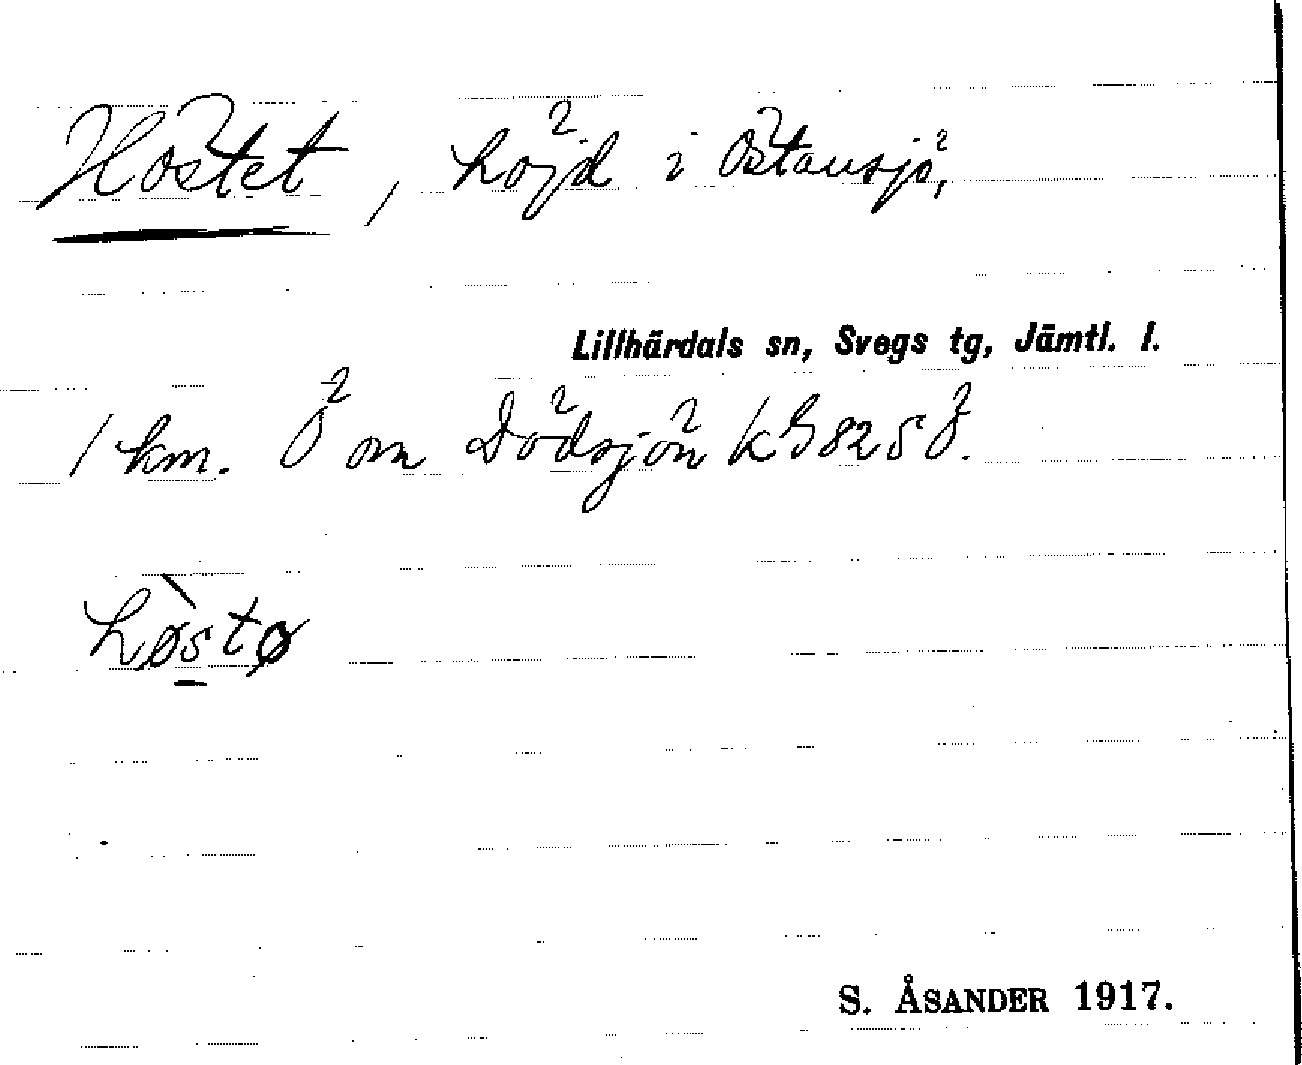 Höstet, höjd i Östansjö,
Lillhärdals sn, Svegs tg, Jämtl. l.
1 km. Ö om Dödsjön kG 825 Ö.
hø̀stø
S. ÅSANDER 1917.